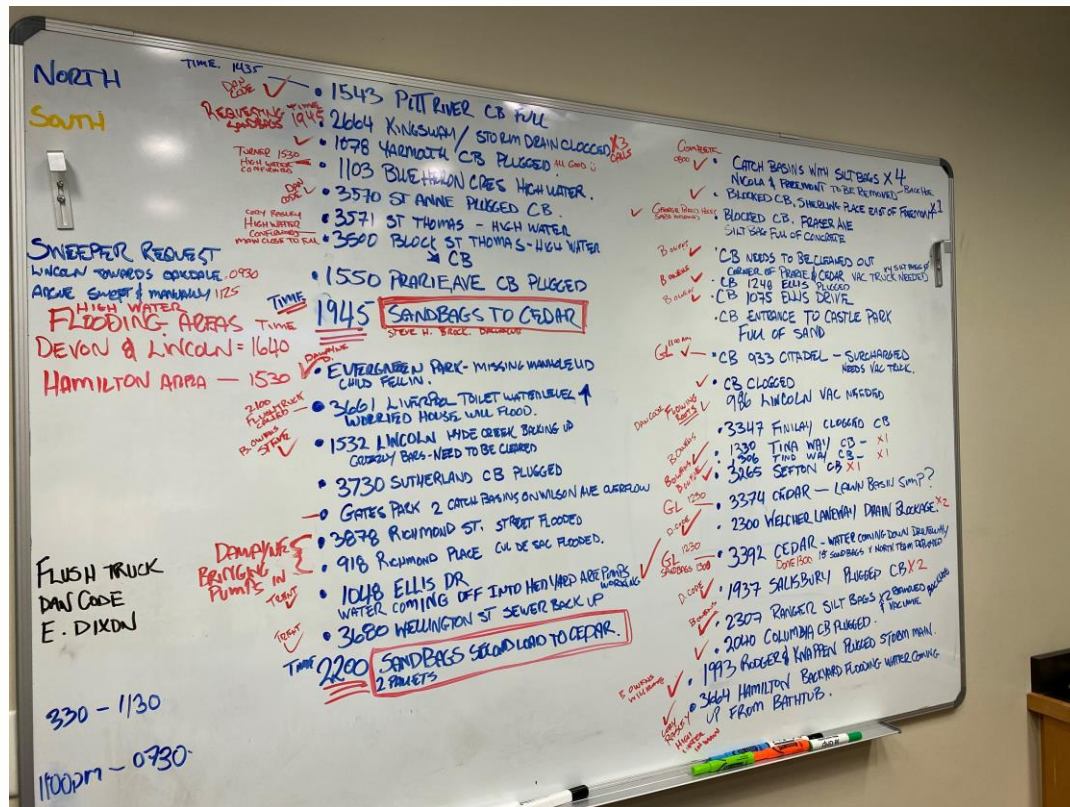 NORTH
SOUTH
SWEEPER REQUEST
LINCOLN TOWARDS OAKDALE. 0930
SWEPT & MANUALLY 1125
HIGH WATER
FLOODING AREAS TIME
DEVON & LINCOLN = 1640
HAMILTON AREA — 1530
FLUSH TRUCK
DAN CODE
E. DIXON
330 - 1130
1100pm - 0730
TIME. 1435
DAN CODE ✓
• 1543 PITT RIVER CB FULL
REQUESTING SANDBAGS TIME 1945
• 2664 KINGSWAY / STORM DRAIN CLOGGED X3 CALLS
✓ • 1078 YARMOUTH CB PLUGGED ALL GOOD
TURNER 1530
HIGH WATER
CONFIRMED
• 1103 BLUE HERON CRES HIGH WATER.
DAN CODE ✓
• 3570 ST ANNE PLUGGED CB.
CORY RASLEY
HIGH WATER
CONFIRMED
MAIN CLOSE TO FULL
• 3571 ST THOMAS - HIGH WATER
• 3600 BLOCK ST THOMAS - HIGH WATER
CB
• 1550 PRARIE AVE CB PLUGGED
TIME 1945 SANDBAGS TO CEDAR
STEVE H. BROCK.
DAWAYNE D. ✓
• EVERGREEN PARK - MISSING MANHOLE LID
CHILD FELL IN.
2100
FLUSH TRUCK
CALLED
• 3661 LIVERPOOL - TOILET WATER LEVEL ↑
WORRIED HOUSE WILL FLOOD.
B. OWENS
STEVE ✓
• 1532 LINCOLN HYDE CREEK BACKING UP
GRIZZLY BARS - NEED TO BE CLEARED
• 3730 SUTHERLAND CB PLUGGED
• GATES PARK 2 CATCH BASINS ON WILSON AVE OVERFLOW
DAWAYNE
BRINGING
PUMPS IN
• 3878 RICHMOND ST. STREET FLOODED
• 918 RICHMOND PLACE CUL DE SAC FLOODED.
TRENT ✓
• 1048 ELLIS DR
WATER COMING OFF INTO YARD ARE PUMPS WORKING
TRENT ✓
• 3680 WELLINGTON ST SEWER BACK UP
TIME 2200 SANDBAGS SECOND LOAD TO CEDAR.
2 PALLETS
COMPLETE
0800 ✓
• CATCH BASINS WITH SILTBAGS X 4
NICOLA & FREEMONT TO BE REMOVED - BACK HOE
✓ • BLOCKED CB, SHERLING PLACE EAST OF FREEMONT X1
✓ BLOCKED CB. FRASER AVE
SILT BAG FULL OF CONCRETE
B OWENS ✓
• CB NEEDS TO BE CLEANED OUT
CORNER OF PRARIE & CEDAR VAC TRUCK NEEDED
B OWENS ✓
• CB 1248 ELLIS PLUGGED
B OWENS ✓
• CB 1075 ELLIS DRIVE
• CB ENTRANCE TO CASTLE PARK
FULL OF SAND
GL ✓
• CB 933 CITADEL - SURCHARGED
NEEDS VAC TRUCK.
✓ • CB CLOGGED
986 LINCOLN VAC NEEDED
DAN CODE FLOWING ROOTS ✓
• 3347 FINLAY CLOGGED CB
B. OWENS ✓
• 1330 TINA WAY CB - X1
BOWENS ✓
• 1306 TINA WAY CB - X1
BOWENS ✓
• 3265 SEFTON CB X1
GL 1230
• 3374 CEDAR - LAWN BASIN SUMP?
D.CODE ✓
• 2300 WELCHER LANEWAY DRAIN BLOCKAGE. X2
GL 1230
SANDBAGS 1300
• 3392 CEDAR - WATER COMING DOWN DRIVEWAY
DONE 1300 15 SANDBAGS
D.CODE ✓
• 1937 SALISBURY PLUGGED CB X2
BOWENS ✓
• 2307 RANGER SILT BAGS X2 REMOVED
✓ • 2040 COLUMBIA CB PLUGGED.
B OWENS ✓
• 1993 RODGER & KNAPPEN PLUGED STORM MAIN.
CORY RASLEY
HIGH WATER
IN MAIN
• 3664 HAMILTON BACKYARD FLOODING WATER COMING
UP FROM BATHTUB.